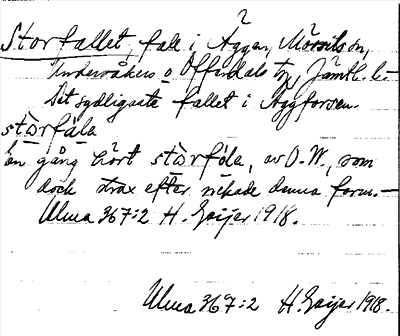 Storfallet, fall i Äggan, Mörsils sn,
Undersåkers o Offerdals tg, Jämtl. l.-
Det sydligaste fallet i Äggforsen.
stòrfála
En gång hört stòrfola, av O.W., som
dock strax efter nekade denna form.-
Ulma 367:2 H. Geijer 1918.
Ulma 367:2 H. Geijer 1918.